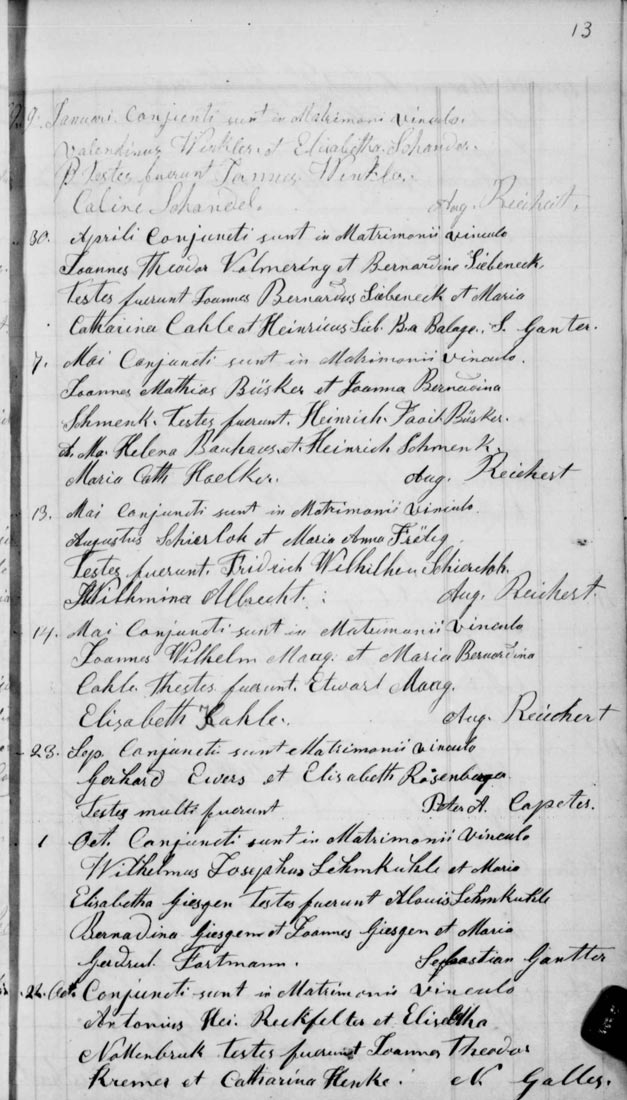 13
9. Januari. Conjuncti sunt in Matrimonii vinculo.
Valendinus Winkler. et Elisabetha. Schandel.
Testes fuerunt Joannes Winkler.
Caline Schandel. Aug. Reichert.
30. Aprili Conjuncti sunt in Matrimonii vinculo
Joannes Theodor Volmering et Bernardine Siebeneck.
Testes fuerunt Joannes Bernardus Siebeneck et Maria
Catharina Cahle et Heinricus Sieb. S. Ganter.
7. Mai Conjuncti sunt in Matrimonii vinculo.
Joannes Mathias Büsker et Joanna Bernadina
Schmenk. Testes fuerunt. Heinrich. Büsker.
et. Ma. Helena Bauhaus. et. Heinrich Schmenk.
Maria Cath Haelker. Aug. Reichert
13. Mai Conjuncti sunt in Matrimonii vinculo.
Augustus Schierloh et Maria Anna
Testes fuerunt. Fridrich Wilhilhem Schierloh.
Wilhmina Albrecht. Aug. Reichert.
14. Mai Conjuncti sunt in Matrimonii vinculo
Joannes Wilhelm Maag. et Maria Bernardina
Cahle. Thestes fuerunt. Etward Maag.
Elisabeth Kahle. Aug. Reichert
23. Sep. Conjuncti sunt Matrimonii vinculo
Gerhard Ewers et Elisabeth Rosenberga
Testes multi fuerunt Peter A. Capeter.
1 Oct. Conjuncti sunt in Matrimonii vinculo
Wilhelmus Josephus Lehmkuhle et Maria
Elisabetha Giesgen testes fuerunt Alouis Lehmkuhle
Bernadina Giesgen et Joannes Giesgen et Maria
Gerdrut Fortmann. Sebastian Gantter
22. Oct. Conjuncti sunt in Matrimonii vinculo
Antonius Hei. Reckfelter et Elisabetha
Nottenbruk testes fuerunt Joannes Theodor
Kremer et Catharina Henke. N Galles.